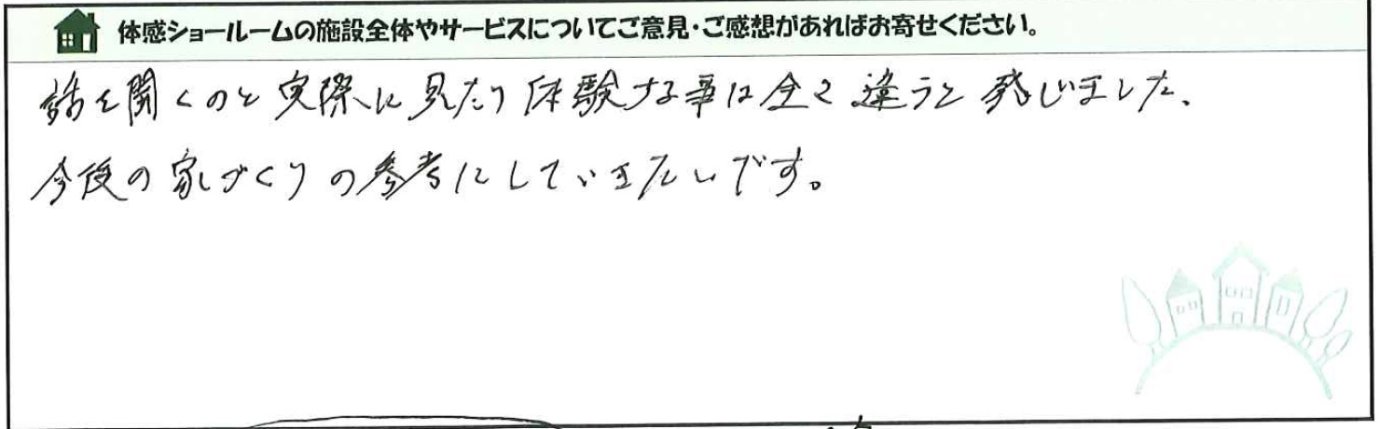 体感ショールームの施設全体やサービスについてご意見・ご感想があればお寄せください。
話を聞くのと実際に見たり体験する事は全く違うと感じました。
今後の家づくりの参考にしていきたいです。